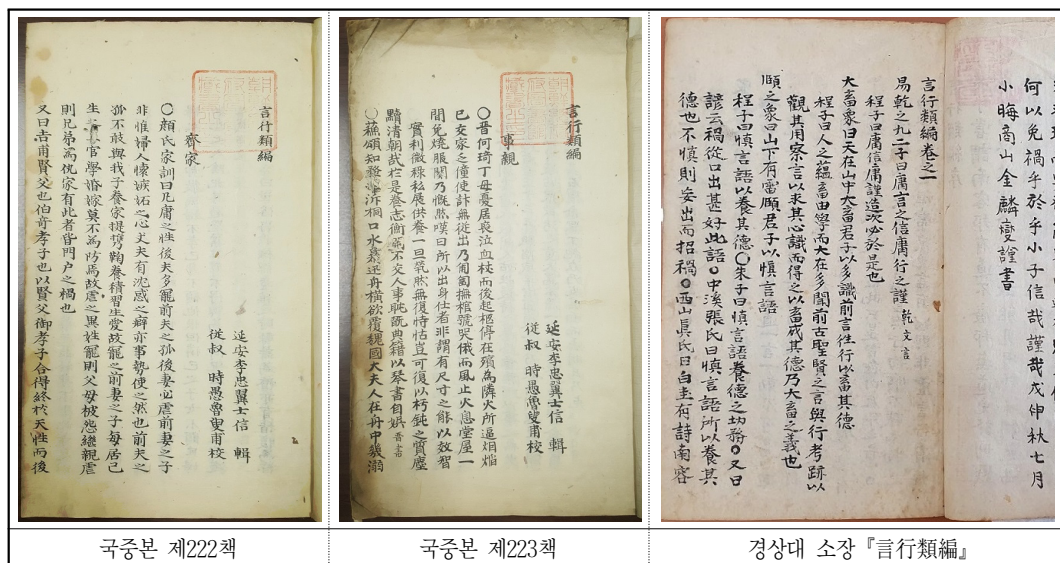 言行類編
延安李忠翼士信 輯
從叔 時愚魯叟甫校
齊家
○顔氏家訓曰凡庸之性後夫多寵前夫之孤後妻必虐前妻之子
非惟婦人懷嫉妬之心丈夫有沈惑之癖亦事勢使之然也前夫之
孤不敢與我子養家提携鞠養積習生愛故寵之前妻之子每居己
生 官學婚嫁莫不爲防焉故虐之異姓寵則父母被怨繼親虐
則兄弟爲仇家有此者皆門户之禍也
又曰吉甫賢父也伯奇孝子也以賢父御孝子合得終於天性而後
국중본 제222책
言行類編
延安李忠翼士信 輯
從叔 時愚魯叟甫校
事親
○晋何琦丁母憂居喪泣血杖而後起柩停在殯爲隣火所逼烟焰
已交家乏僮使計無從出乃匍匐撫棺號哭俄而風止火息堂屋一
間免燒服闋乃慨然嘆曰所以出身仕者非謂有尺寸之能以效智
實利微祿私展供養一旦煢然無復恃怙豈可復以朽鈍之質塵
黷清朝哉於是養志衡門不交人事耽翫典籍以琴書自娛 晋書
○蘇頌知婺州泝桐口水暴迅舟橫欲覆魏國大夫人在舟中幾溺
국중본 제223책
何以免禍乎於乎小子信哉謹哉戊申秋七月
小晦商山金麟燮謹書
言行類編卷之一
易乾之九二子曰庸言之信庸行之謹 乾文言
程子曰庸信庸謹造次必於是也
大畜象曰天在山中大畜君子以多識前言徃行以畜其德
程子曰人之蘊畜由學而大在多聞前古聖賢之言與行考跡以
觀其用察言以求其心識而得之以畜成其德乃大畜之義也
頤之象曰山下有雷頤君子以愼言語
程子曰愼言語以養其德○朱子曰愼言語養德之切務○又曰
諺云禍從口出甚好此語○中溪張氏曰愼言語所以養其
德也不愼則妄出而招禍○西山眞氏曰白圭有詩南容
경상대 소장『言行類編』